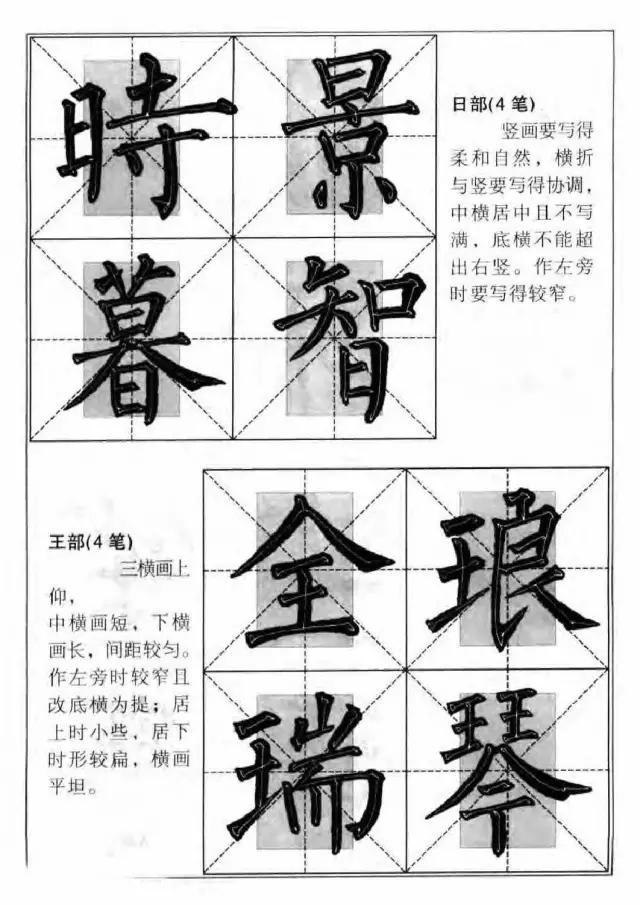 時景
暮智
日部(4笔)
竖画要写得
柔和自然，横折
与竖要写得协调，
中横居中且不写
满，底横不能超
出右竖。作左旁
时要写得较窄。
王部(4笔)
三横画上
仰，
中横画短，下横
画长，间距较匀。
作左旁时较窄且
改底横为提；居
上时小些，居下
时形较扁，横画
平坦。
全琅
瑞琴